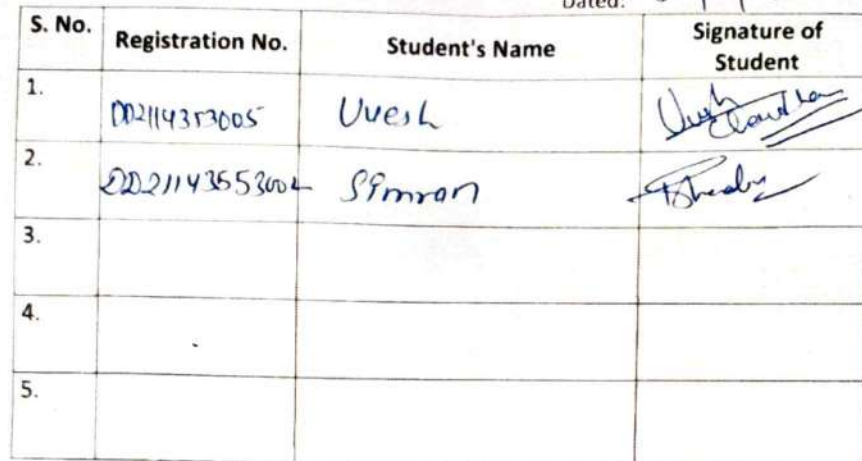 Dated:
S. No. Registration No. Student's Name Signature of Student
1. DD2114353005 Uvesh
2. DD21143553002 Simran
3.
4.
5.